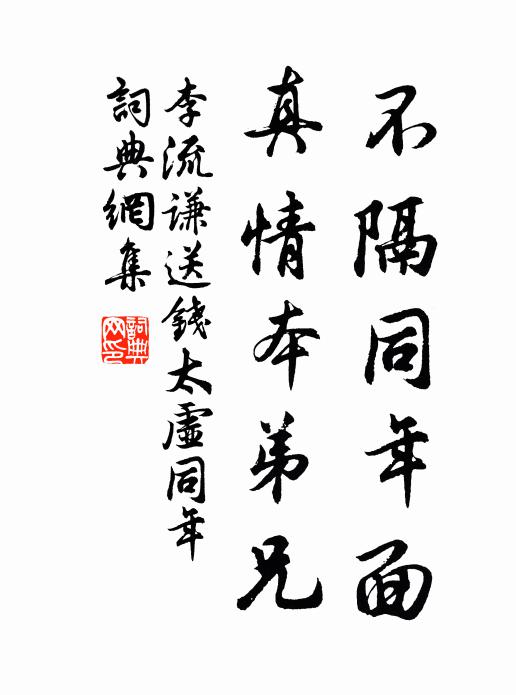 不隔同年面
真情本弟兄
李流謙送錢太虛同年
詞典網集
詞典
网印